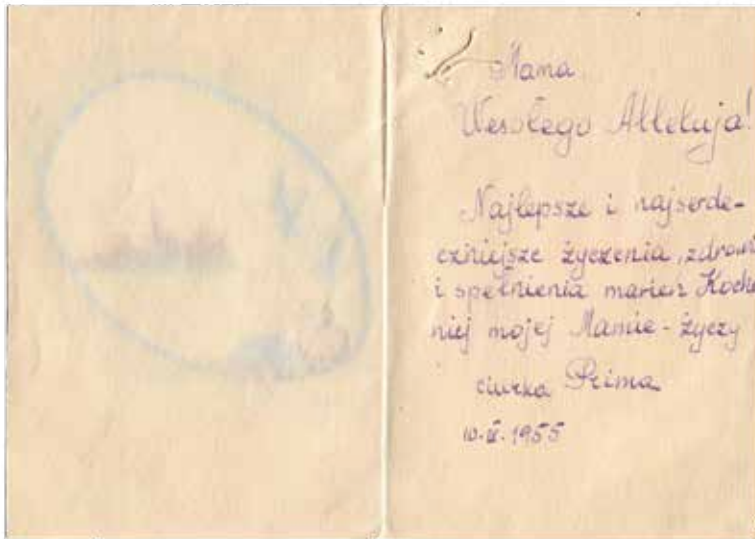 Mama
Wesołego Alleluja!
Najlepsze i najserde-
czniejsze życzenia, zdrowi
i spełnienia marień Kocha
niej mojej Mamie - życzy
Prima
10.IV.1955